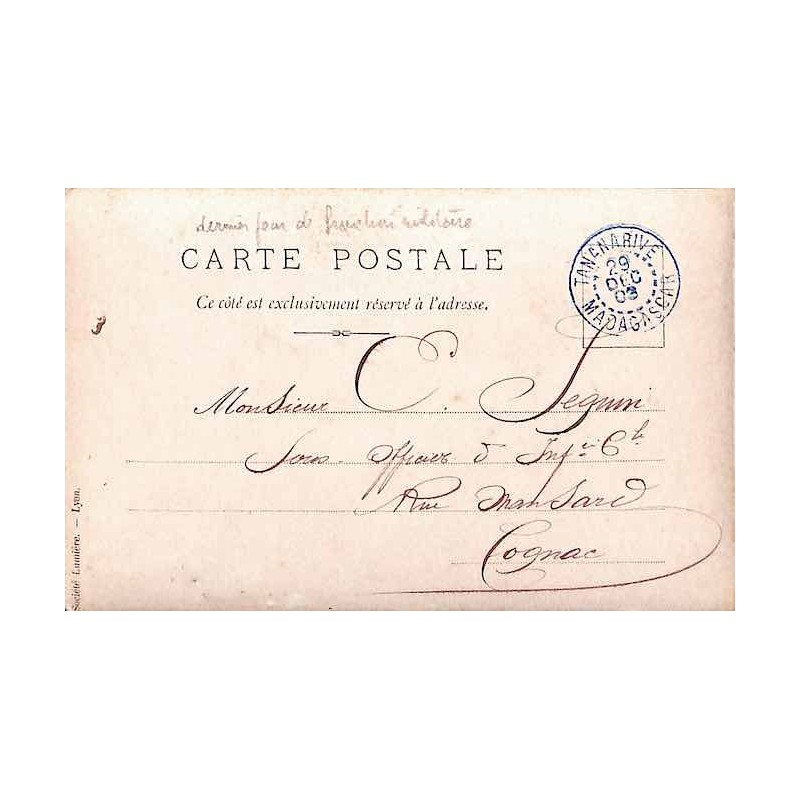 dernier jour de franchise militaire
CARTE POSTALE
Ce côté est exclusivement réservé à l'adresse.
TANANARIVE
29
DEC
03
MADAGASCAR
Monsieur C. Seguin
Sous-Officier d'Infie Cle
Rue Mansard
Cognac
Société Lumière. — Lyon.